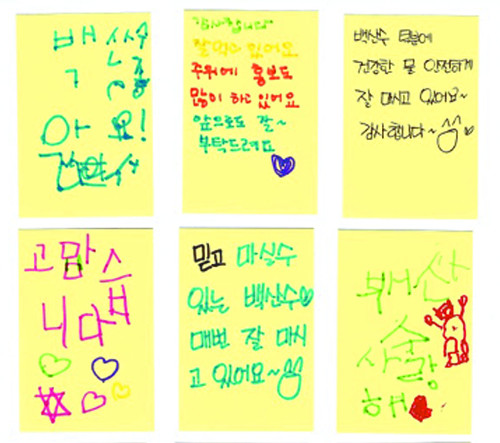 백산수
좋
아요!
감사합니다
잘먹고 있어요
주위에 홍보도
많이 하고 있어요
앞으로도 잘~
부탁드려요
백산수 덕분에
건강한 물 안전하게
잘 마시고 있어요~
감사합니다~
고맙습
니다
믿고 마실수
있는 백산수
매번 잘 마시
고 있어요~
백산
수
사랑
해